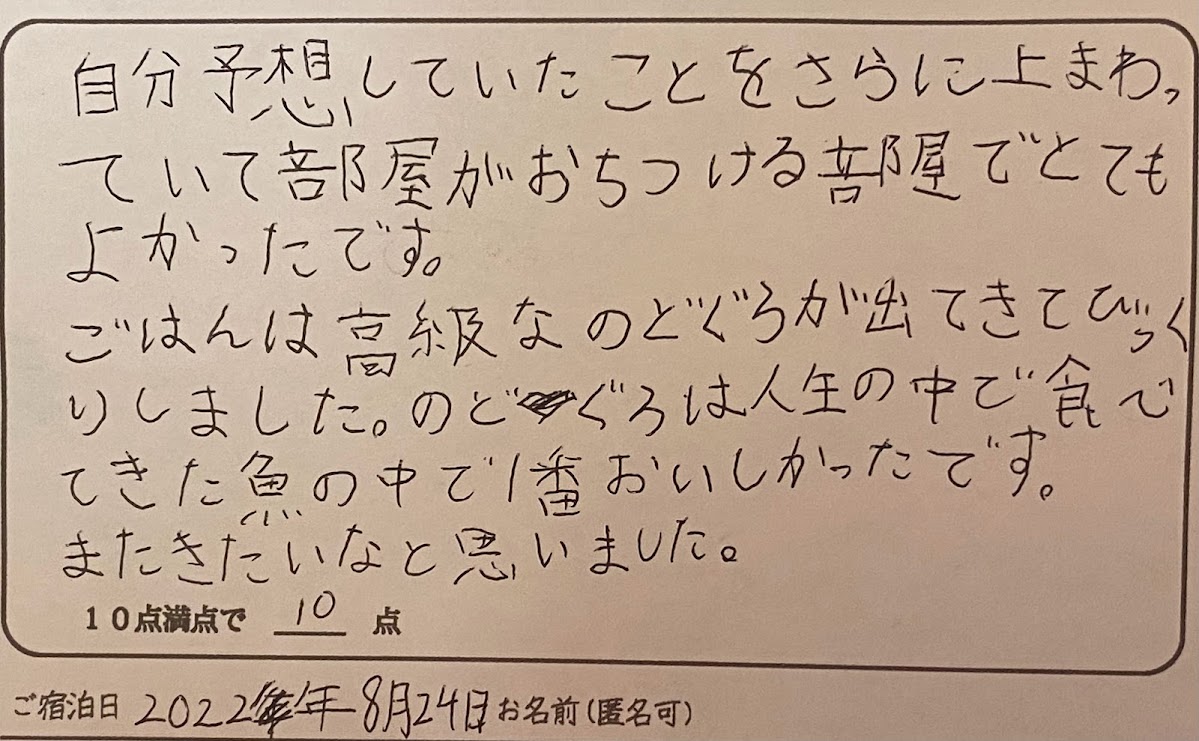 自分予想していたことをさらに上まわっ
ていて部屋がおちつける部屋でとても
よかったです。
ごはんは高級なのどぐろが出てきてびっく
りしました。のどぐろは人生の中で食べ
てきた魚の中で1番おいしかったです。
またきたいなと思いました。
10点満点で 10 点
ご宿泊日 2022年8月24日 お名前(匿名可)